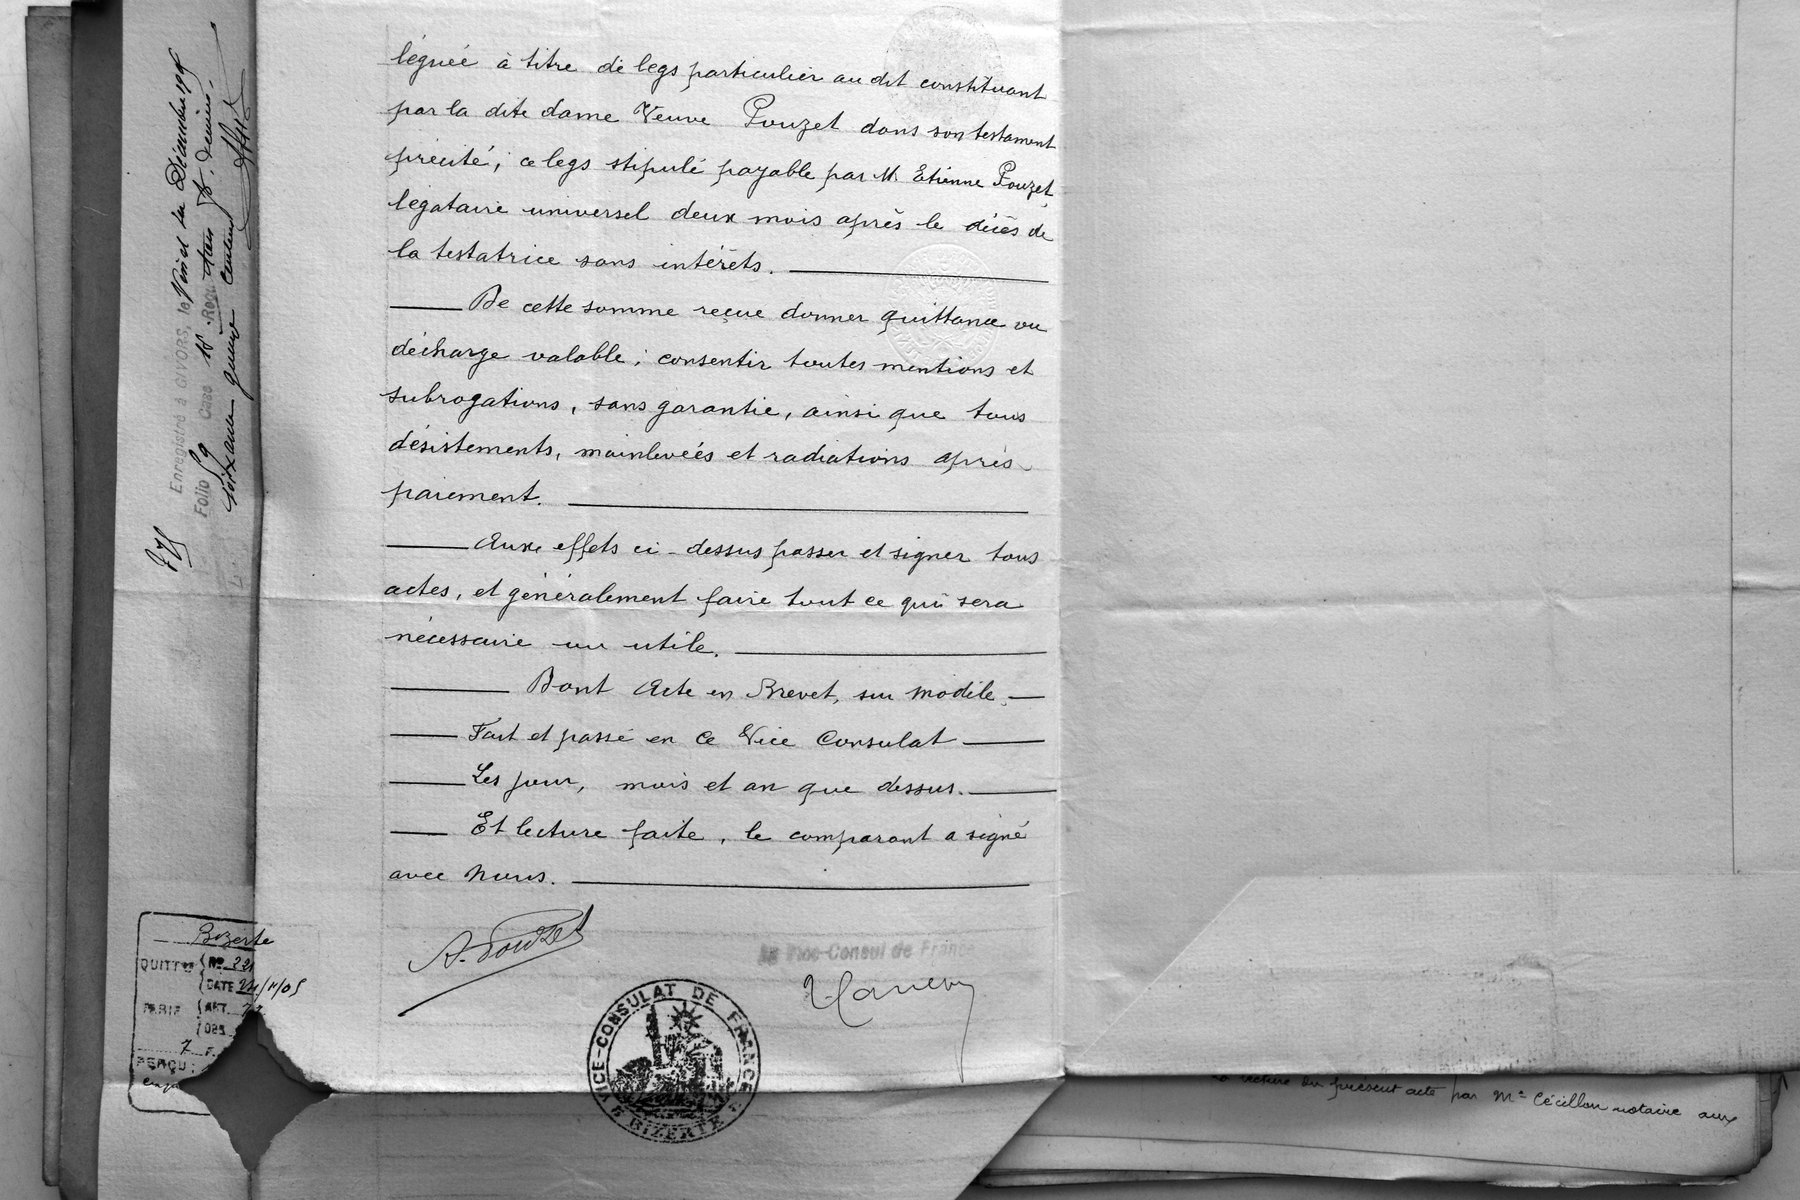 léguée à titre de legs particulier au dit constituant
par la dite dame Veuve Pouzet dans son testament
précité; ce legs stipulé payable par M. Etienne Pouzet,
légataire universel deux mois après le décès de
la testatrice sans intérêts.
De cette somme reçue donner quittance ou
décharge valable; consentir toutes mentions et
subrogations, sans garantie, ainsi que tous
désistements, mainlevées et radiations après
paiement.
Aux effets ci-dessus passer et signer tous
actes, et généralement faire tout ce qui sera
nécessaire ou utile.
Dont Acte en Brevet, sur modèle.
Fait et passé en ce Vice Consulat
Les jour, mois et an que dessus.
Et lecture faite, le comparant a signé
avec Nous.
A. Pouzet
Le Vice-Consul de France
VICE-CONSULAT DE FRANCE
BIZERTE
Enregistré à GIVORS, le Vingt six Décembre
Folio 59 Case 18 Reçu trois
soixante quinze centimes
Bizerte
QUITTCE
No 221
DATE
ART.
OBS
7 F.
PERÇU:
lecture du présent acte par Me Cécillon notaire aux